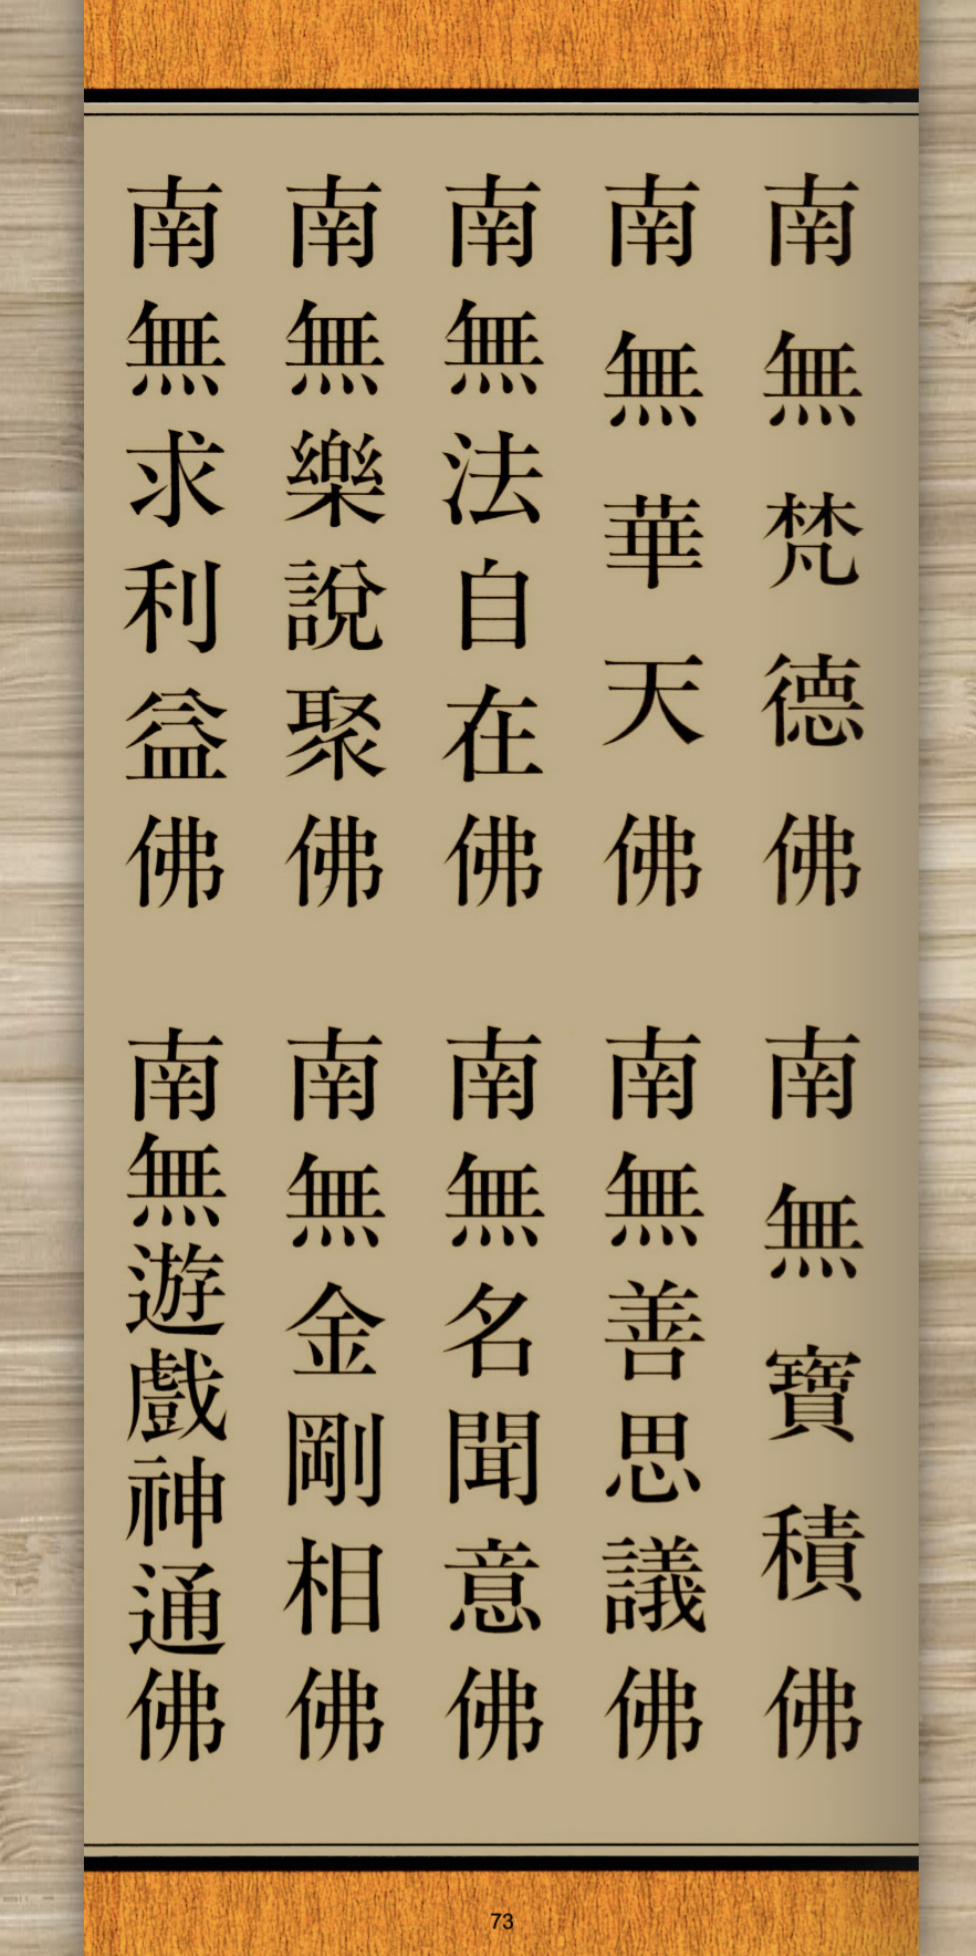 南無梵德佛
南無寶積佛
南無華天佛
南無善思議佛
南無法自在佛
南無名聞意佛
南無樂說聚佛
南無金剛相佛
南無求利益佛
南無遊戲神通佛
73